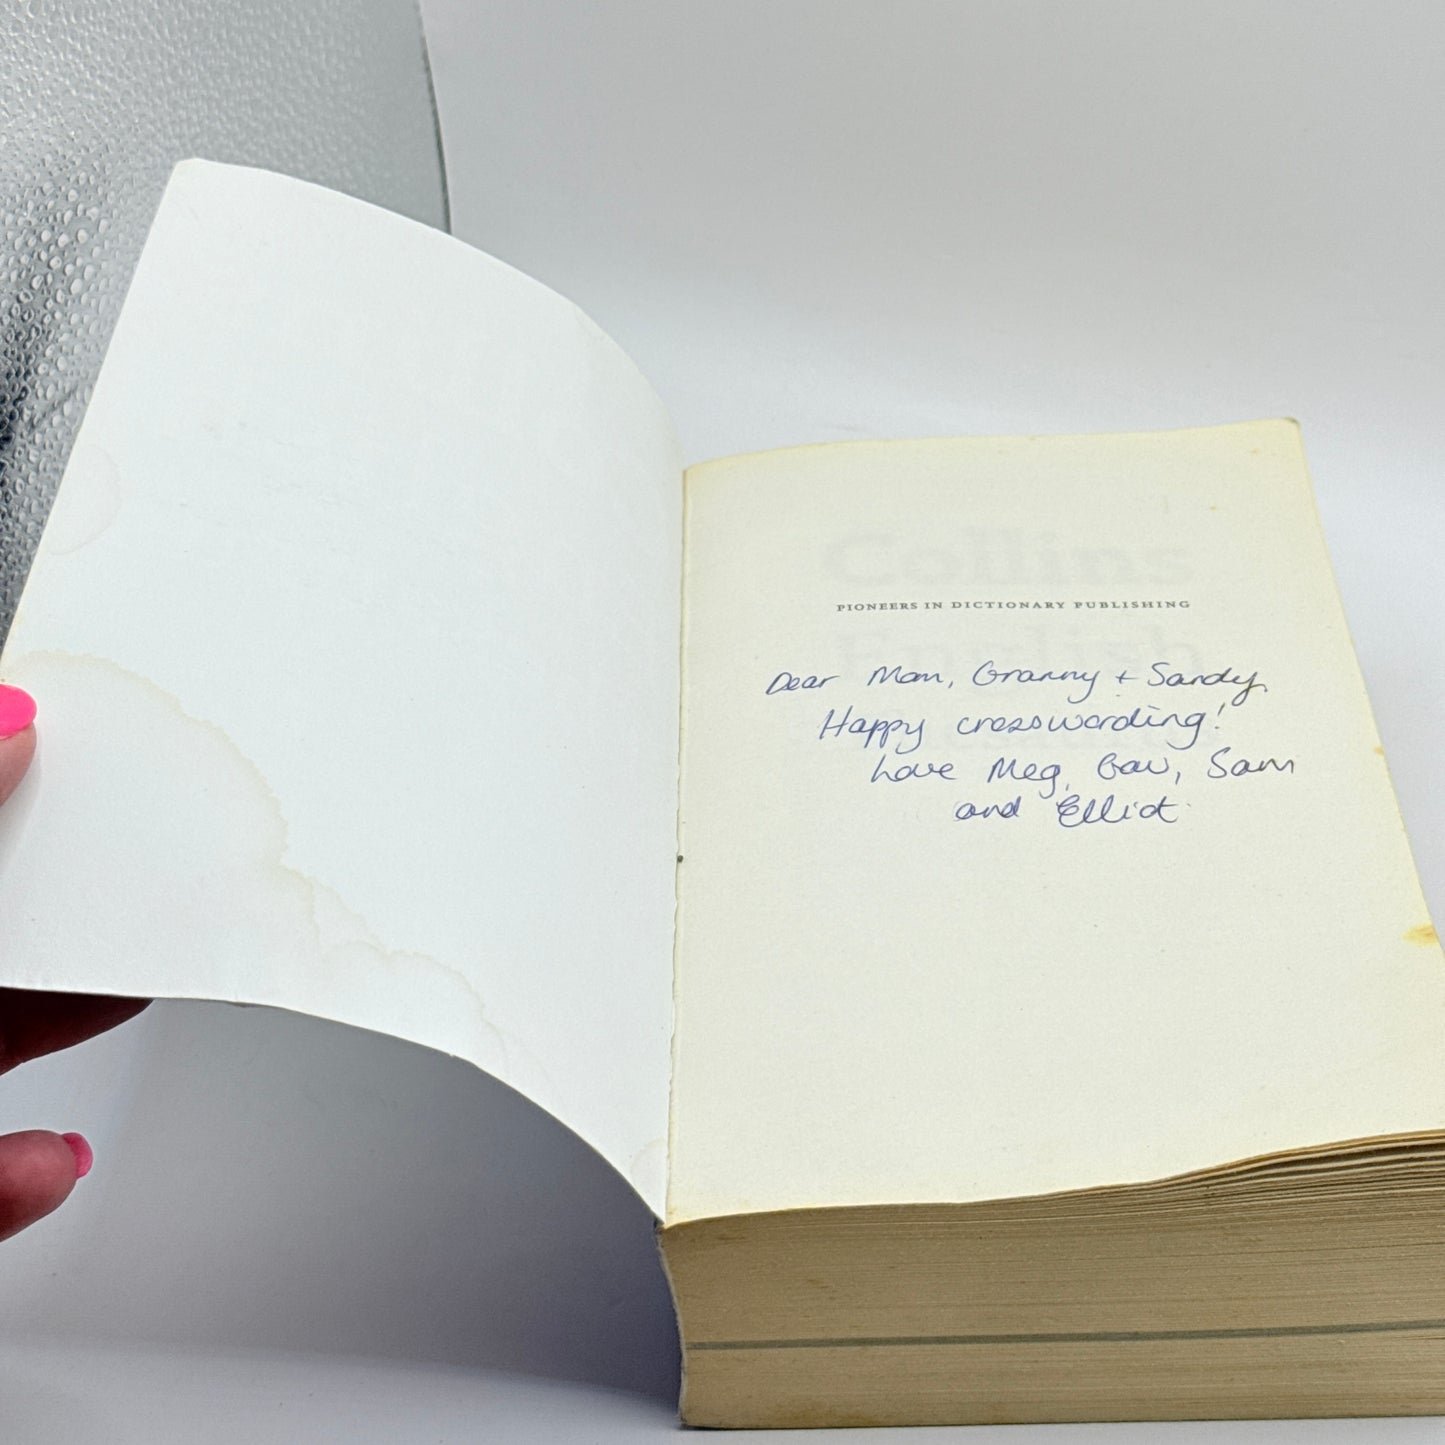 Collins
PIONEERS IN DICTIONARY PUBLISHING
English
Dear Mam, Granny + Sandy,
Happy crosswording!
Love Meg, Gav, Sam
and Elliot.